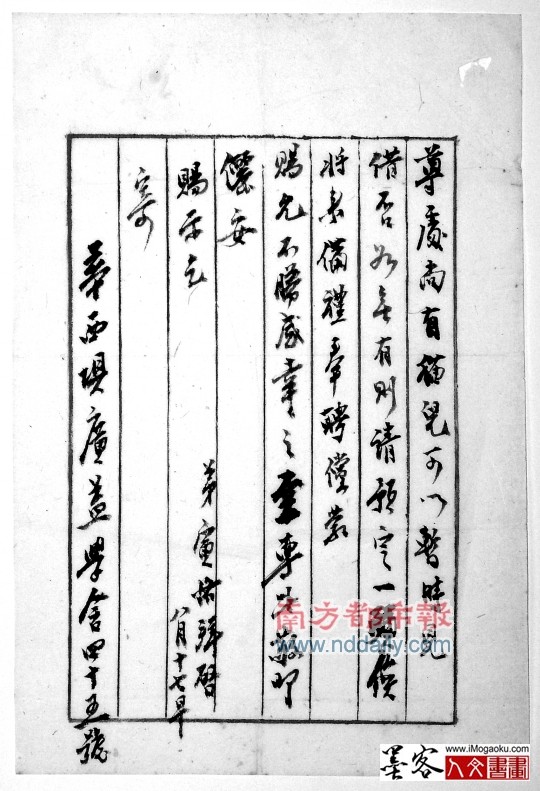 尊處尚有猫兒可以暫時見
借否如無有則請預定一頭俟
將來備禮奉聘儻蒙
賜允不勝感幸之至專此敬叩
儷安
弟寅恪拜啓
八月十七早
賜示乞
寄
華西壩廣益學舍四十五號
南方都市報
www.nddaily.com
墨客
www.iMogaoku.com
人文書畫